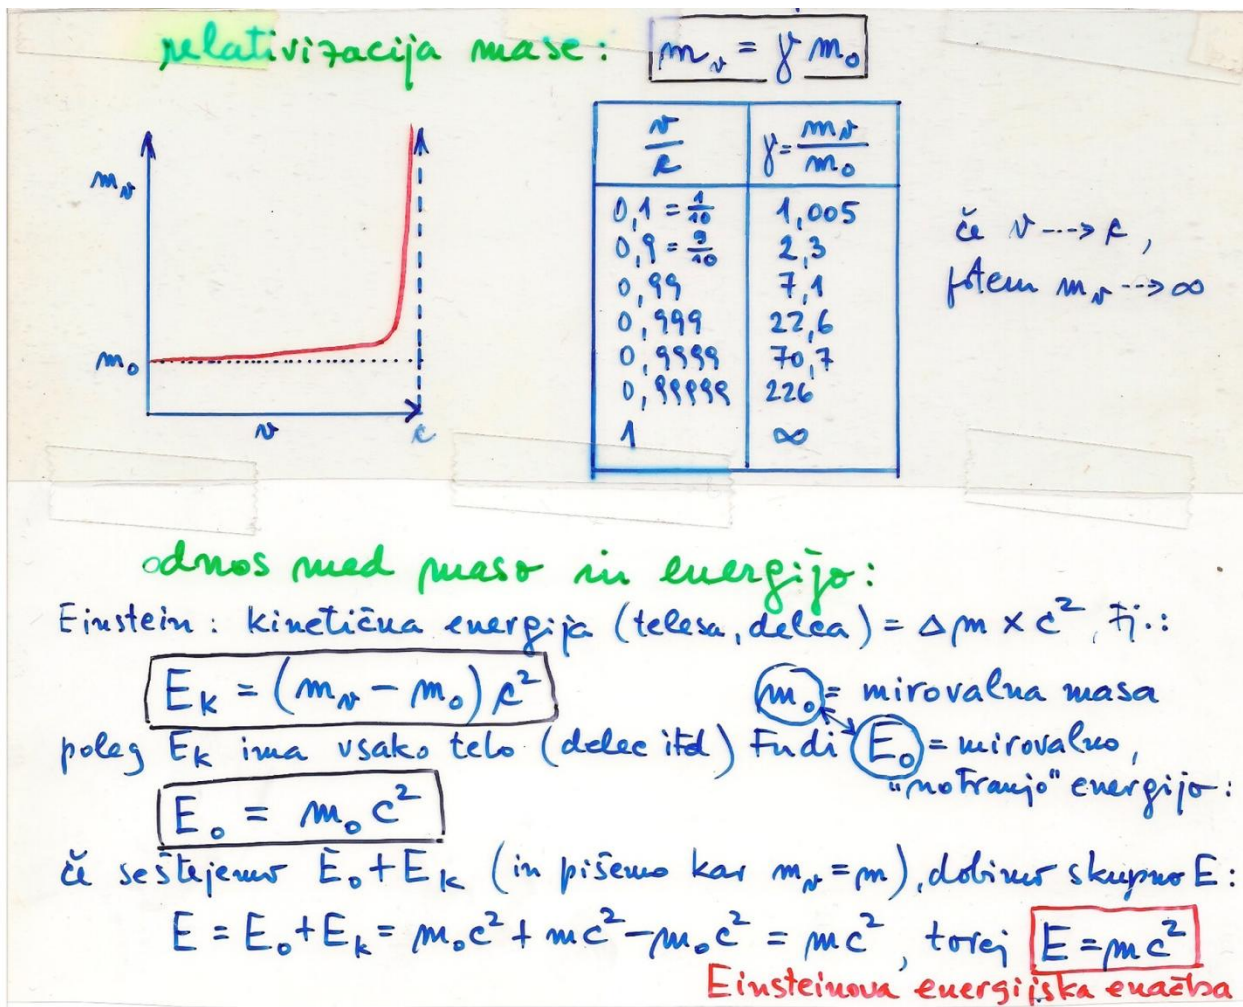 relativizacija mase: m_v = γ m_0
m_v
m_0
v
c
v/c γ = m_v/m_0
0,1 = 1/10 1,005
0,9 = 9/10 2,3
0,99 7,1
0,999 22,6
0,9999 70,7
0,99999 226
1 ∞
če v ---> c,
potem m_v --> ∞
odnos med maso in energijo:
Einstein: kinetična energija (telesa, delca) = Δm × c², tj.:
E_k = (m_v − m_0) c²
m_0 = mirovalna masa
poleg E_k ima vsako telo (delec itd) tudi E_0 = mirovalno,
"notranjo" energijo:
E_0 = m_0 c²
če seštejemo E_0 + E_k (in pišemo kar m_v = m), dobimo skupno E:
E = E_0 + E_k = m_0c² + mc² − m_0c² = mc², torej E = mc²
Einsteinova energijska enačba